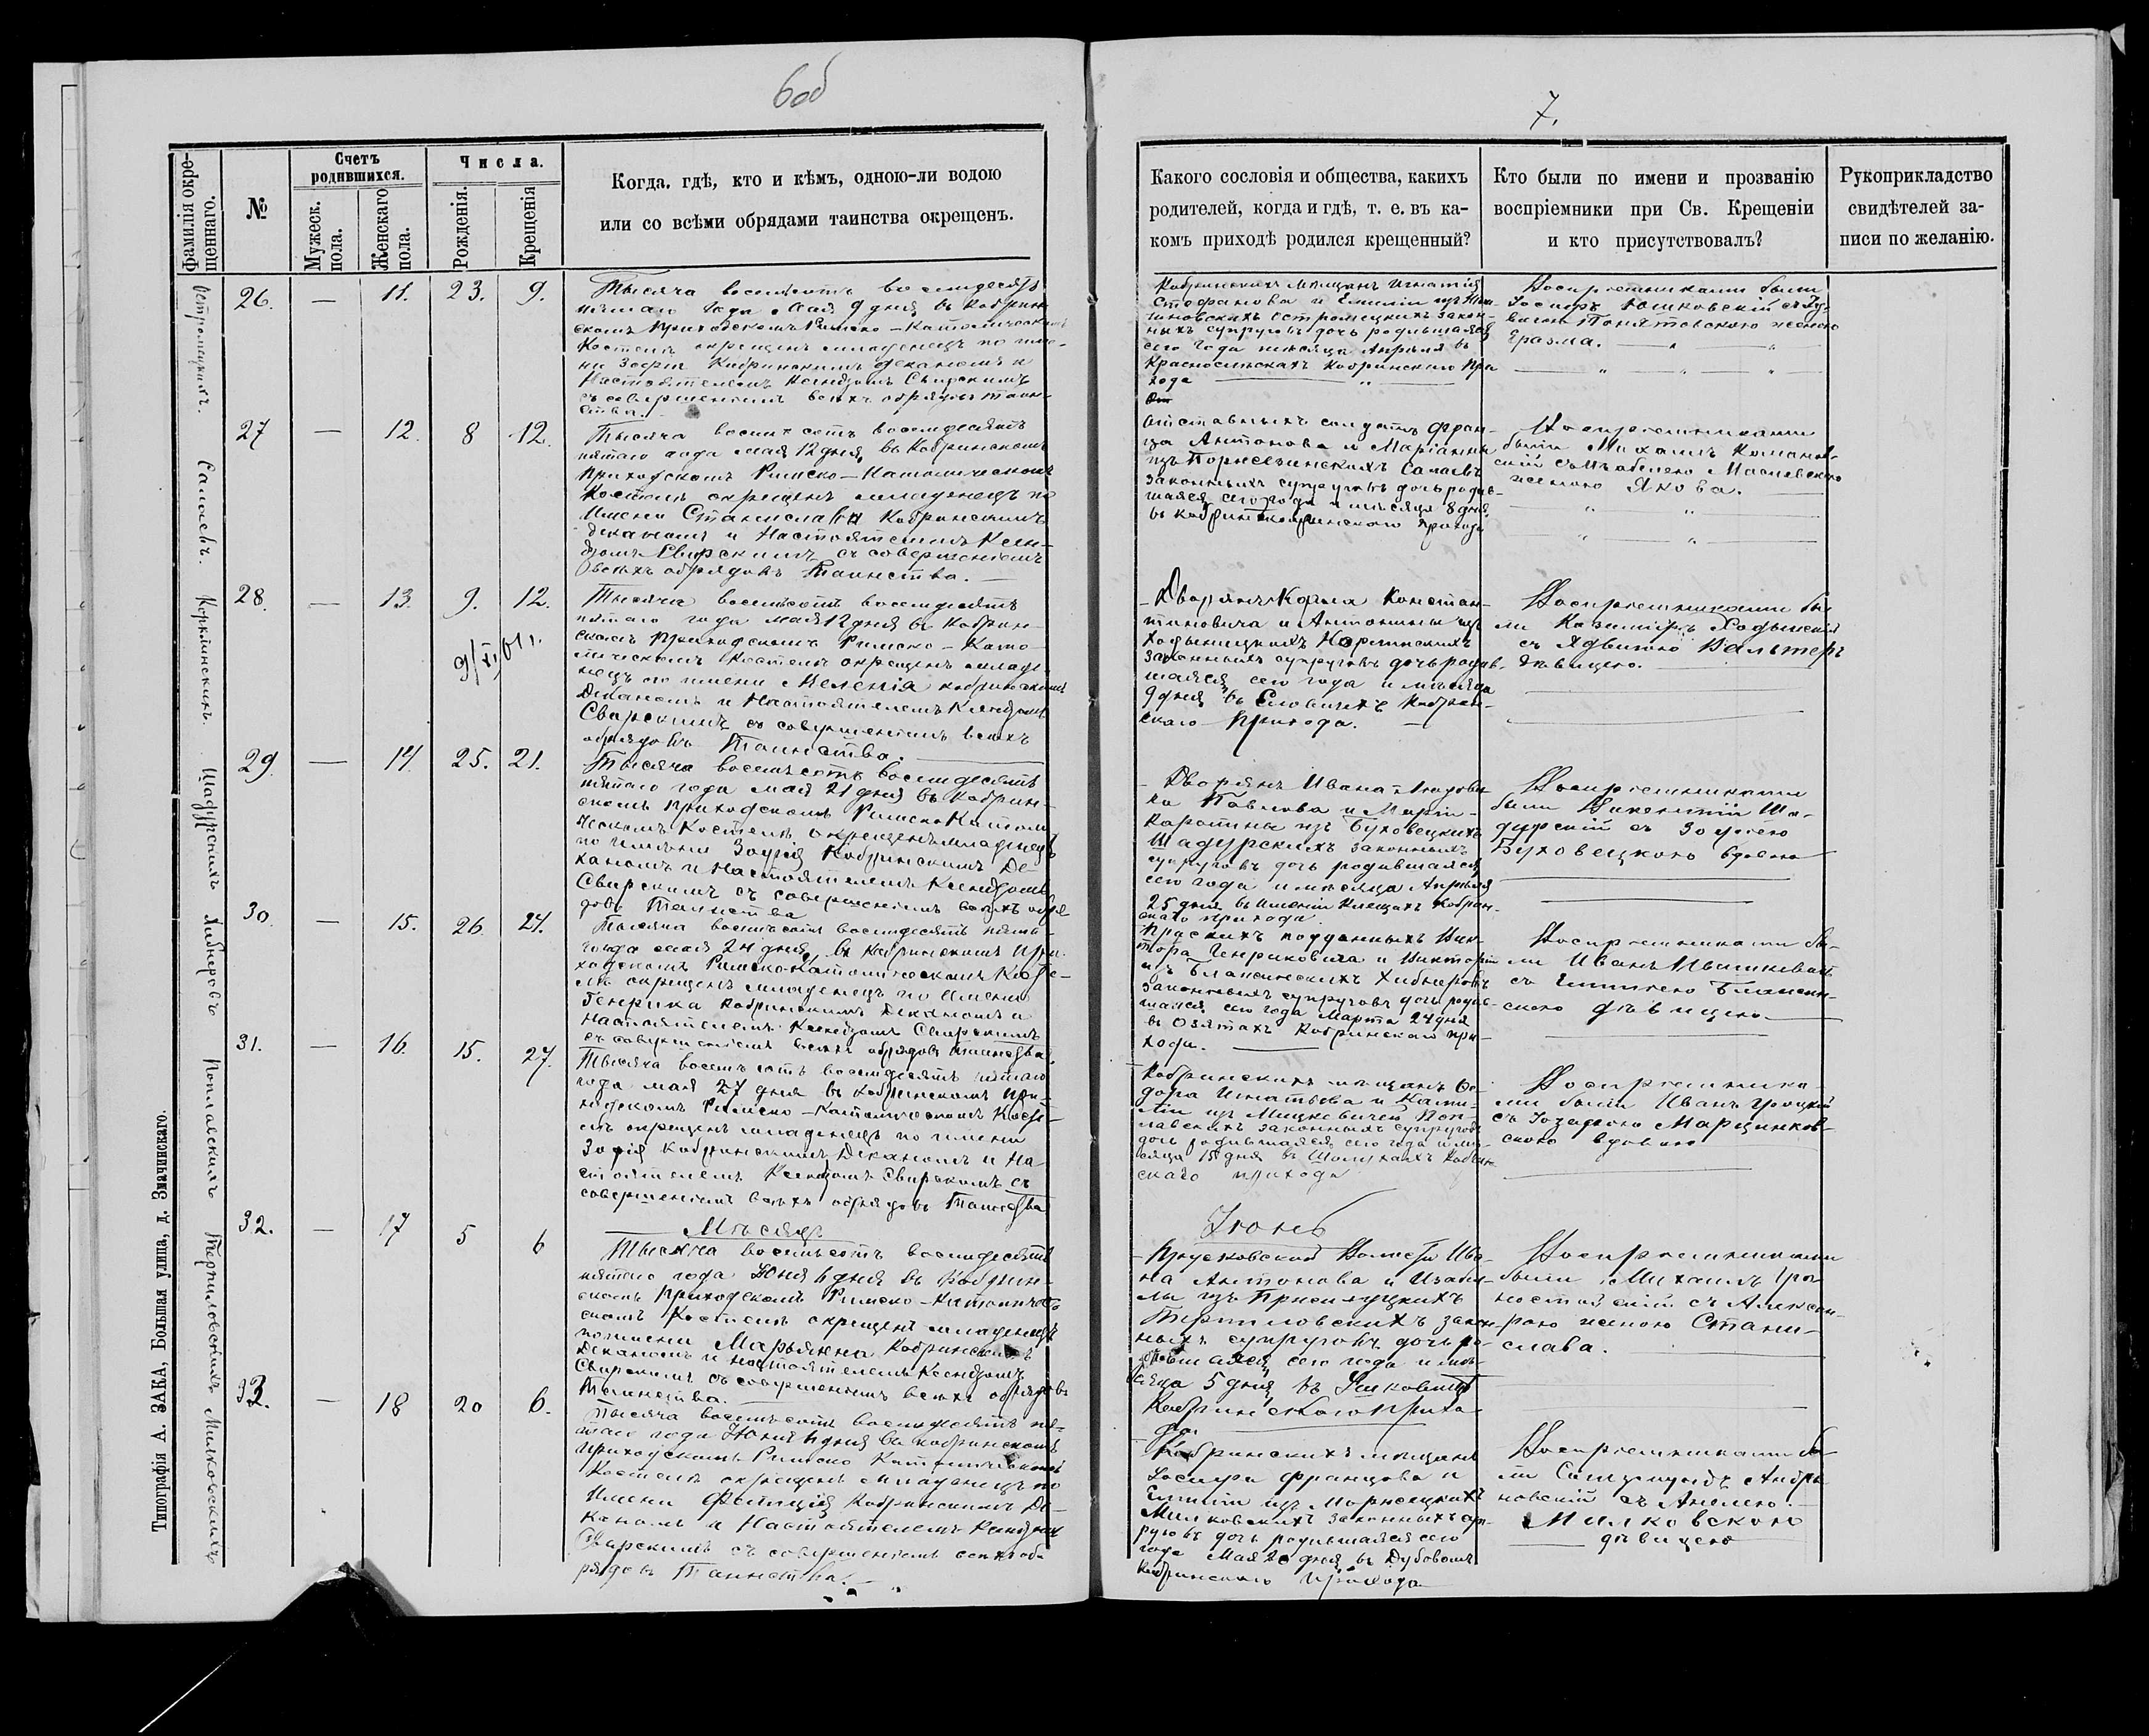 6об
7.
Фамилія окре-
щеннаго.
№
Счетъ
родившихся.
Мужеск.
пола.
Женскаго
пола.
Числа.
Рожденія.
Крещенія
Когда. гдѣ, кто и кѣмъ, одною-ли водою
или со всѣми обрядами таинства окрещенъ.
Какого сословія и общества, какихъ
родителей, когда и гдѣ, т. е. въ ка-
комъ приходѣ родился крещенный?
Кто были по имени и прозванію
воспріемники при Св. Крещеніи
и кто присутствовалъ?
Рукоприкладство
свидѣтелей за-
писи по желанію.
Остромецкихъ.
26. — 11. 23. 9.
Тысяча восемьсотъ восемдесятъ
пятаго года Мая 9 дня въ Кобрин-
скомъ Приходскомъ Римско-Католическомъ
Костелѣ окрещенъ младенецъ по име-
ни Зофія Кобринскимъ Деканомъ и
Настоятелемъ Ксендзомъ Свирскимъ
съ совершеніемъ всѣхъ обрядовъ таин-
ства.
Кобринскихъ мѣщанъ Игнатія
Стефанова и Емиліи изъ
Остромецкихъ закон-
ныхъ супруговъ дочь родившаяся
сего года мѣсяца Апрѣля въ
Красносельскахъ Кобринского при
хода
Воспріемниками были
Іосифъ Юшковскій съ
Понятовскою женою
Еразма.
Салаевъ.
27 — 12. 8 12.
Тысяча восемьсотъ восемдесятъ
пятаго года мая 12 дня въ Кобринскомъ
Приходскомъ Римско-Католическомъ
Костелѣ окрещенъ младенецъ по
Имени Станислава Кобринскимъ
Деканомъ и Настоятелемъ Ксен-
дзомъ Свирскимъ съ совершеніемъ
всѣхъ обрядовъ Таинства.
Отставныхъ солдатъ Фран-
ца Антонова и Маріанны
изъ Салаевъ
законныхъ супруговъ дочь родив-
шаяся сего года и мѣсяца 8 дня
въ Кобринского прихода
Воспріемниками
были Михаилъ
съ Маслевскою
женою Якова.
Корминскихъ.
28. — 13. 9. 12.
9/XI,61 г.
Тысяча восемьсотъ восемдесятъ
пятаго года мая 12 дня въ Кобрин-
скомъ Приходскомъ Римско-Като-
лическомъ Костелѣ окрещенъ младе-
нецъ по имени Меленія Кобринскимъ
Деканомъ и Настоятелемъ Ксендзомъ
Свирскимъ съ совершеніемъ всѣхъ
обрядовъ Таинства.
Дворянъ Карла Констан-
тиновича и Антонины изъ
Ходыницкихъ Корминскихъ
законныхъ супруговъ дочь родив-
шаяся сего года и мѣсяца
9 дня въ Кобрин-
скаго Прихода.
Воспріемниками бы
ли Казиміръ
съ Ядвигою Вальтеръ
дѣвицею.
Шадурскихъ
29. — 14. 25. 21.
Тысяча восемьсотъ восемдесятъ
пятаго года мая 21 дня въ Кобрин-
скомъ Приходскомъ Римско-Католи
ческомъ Костелѣ окрещенъ младенецъ
по имени Зофія Кобринскимъ Де-
каномъ и Настоятелемъ Ксендзомъ
Свирскимъ съ совершеніемъ всѣхъ обря
довъ Таинства
Дворянъ Ивана-Людови-
ка Павлова и Маріи-
Каролины изъ Буховецкихъ
Шадурскихъ законныхъ
супруговъ дочь родившаяся
сего года и мѣсяца Апрѣля
25 дня въ имѣніи Клещахъ Кобрин-
скаго прихода
Воспріемниками
были Викентій Ша-
дурскій съ Зофіею
Буховецкою вдовою
Хибнеровъ
30. — 15. 26. 24.
Тысяча восемьсотъ восемдесятъ пята-
го года мая 24 дня въ Кобринскомъ При
ходскомъ Римско-Католическомъ Косте-
лѣ окрещенъ младенецъ по Имени
Генрика Кобринскимъ Деканомъ и
Настоятелемъ Ксендзомъ Свирскимъ
съ совершеніемъ всѣхъ обрядовъ таинства
Прускихъ подданныхъ Вик-
тора Генриковича и Викторіи
изъ Хибнеровъ
законныхъ супруговъ дочь родив-
шаяся сего года Марта 24 дня
въ Озятахъ Кобринского при-
хода.
Воспріемниками бы-
ли Иванъ Ивашкевичъ
съ Емиліею
дѣвицею
Поплавскихъ
31. — 16. 15. 27.
Тысяча восемьсотъ восемдесятъ пятаго
года мая 27 дня въ Кобринскомъ При-
ходскомъ Римско-Католическомъ Косте-
лѣ окрещенъ младенецъ по имени
Зофія Кобринскимъ Деканомъ и На
стоятелемъ Ксендзомъ Свирскимъ съ
совершеніемъ всѣхъ обрядовъ Таинства
Кобринскихъ мѣщанъ Ѳе-
дора Игнатьева и Ками-
ліи изъ Мицкевичей Поп-
лавскихъ законныхъ супруговъ
дочь родившаяся сего года и мѣ-
сяца 15 дня въ Кобрин
скаго прихода
Воспріемника-
ми были Иванъ
съ Іозефою Марцинков-
скою вдовою
Мѣсяцъ
Іюнь
Терпиловскихъ
32. — 17 5 6
Тысяча восемьсотъ восемдесятъ
пятаго года Юня 6 дня въ Кобрин-
скомъ Приходскомъ Римско-Католиче-
скомъ Костелѣ окрещенъ младенецъ
по имени Марьянна Кобринскимъ
Деканомъ и Настоятелемъ Ксендзомъ
Свирскимъ съ совершеніемъ всѣхъ обрядовъ
Таинства.
Прусковской Волости Ива-
на Антонова и Изабел-
лы изъ
Терпиловскихъ закон-
ныхъ супруговъ дочь ро-
дившаяся сего года и мѣ-
сяца 5 дня въ
Кобринскаго Прихо-
да.
Воспріемниками
были Михаилъ
съ Алексан-
дрою женою Стани-
слава.
Милковскихъ
33. — 18 20 6.
Тысяча восемьсотъ восемдесятъ пя-
таго года Юня 6 дня въ Кобринскомъ
Приходскомъ Римско Католическомъ
Костелѣ окрещенъ младенецъ по
Имени Фелиція Кобринскимъ Де-
каномъ и Настоятелемъ Ксендзомъ
Свирскимъ съ совершеніемъ всѣхъ об-
рядовъ Таинства.
Кобринскихъ мѣщанъ
Іосифа Францова и
Емиліи изъ
Милковскихъ законныхъ суп-
руговъ дочь родившаяся сего
года Мая 20 дня въ Дубовомъ
Кобринскаго Прихода
Воспріемниками бы-
ли Сигизмундъ
съ Анелею
Милковскою
дѣвицею
Типографія А. ЗАКА, Большая улица, д. Значинскаго.